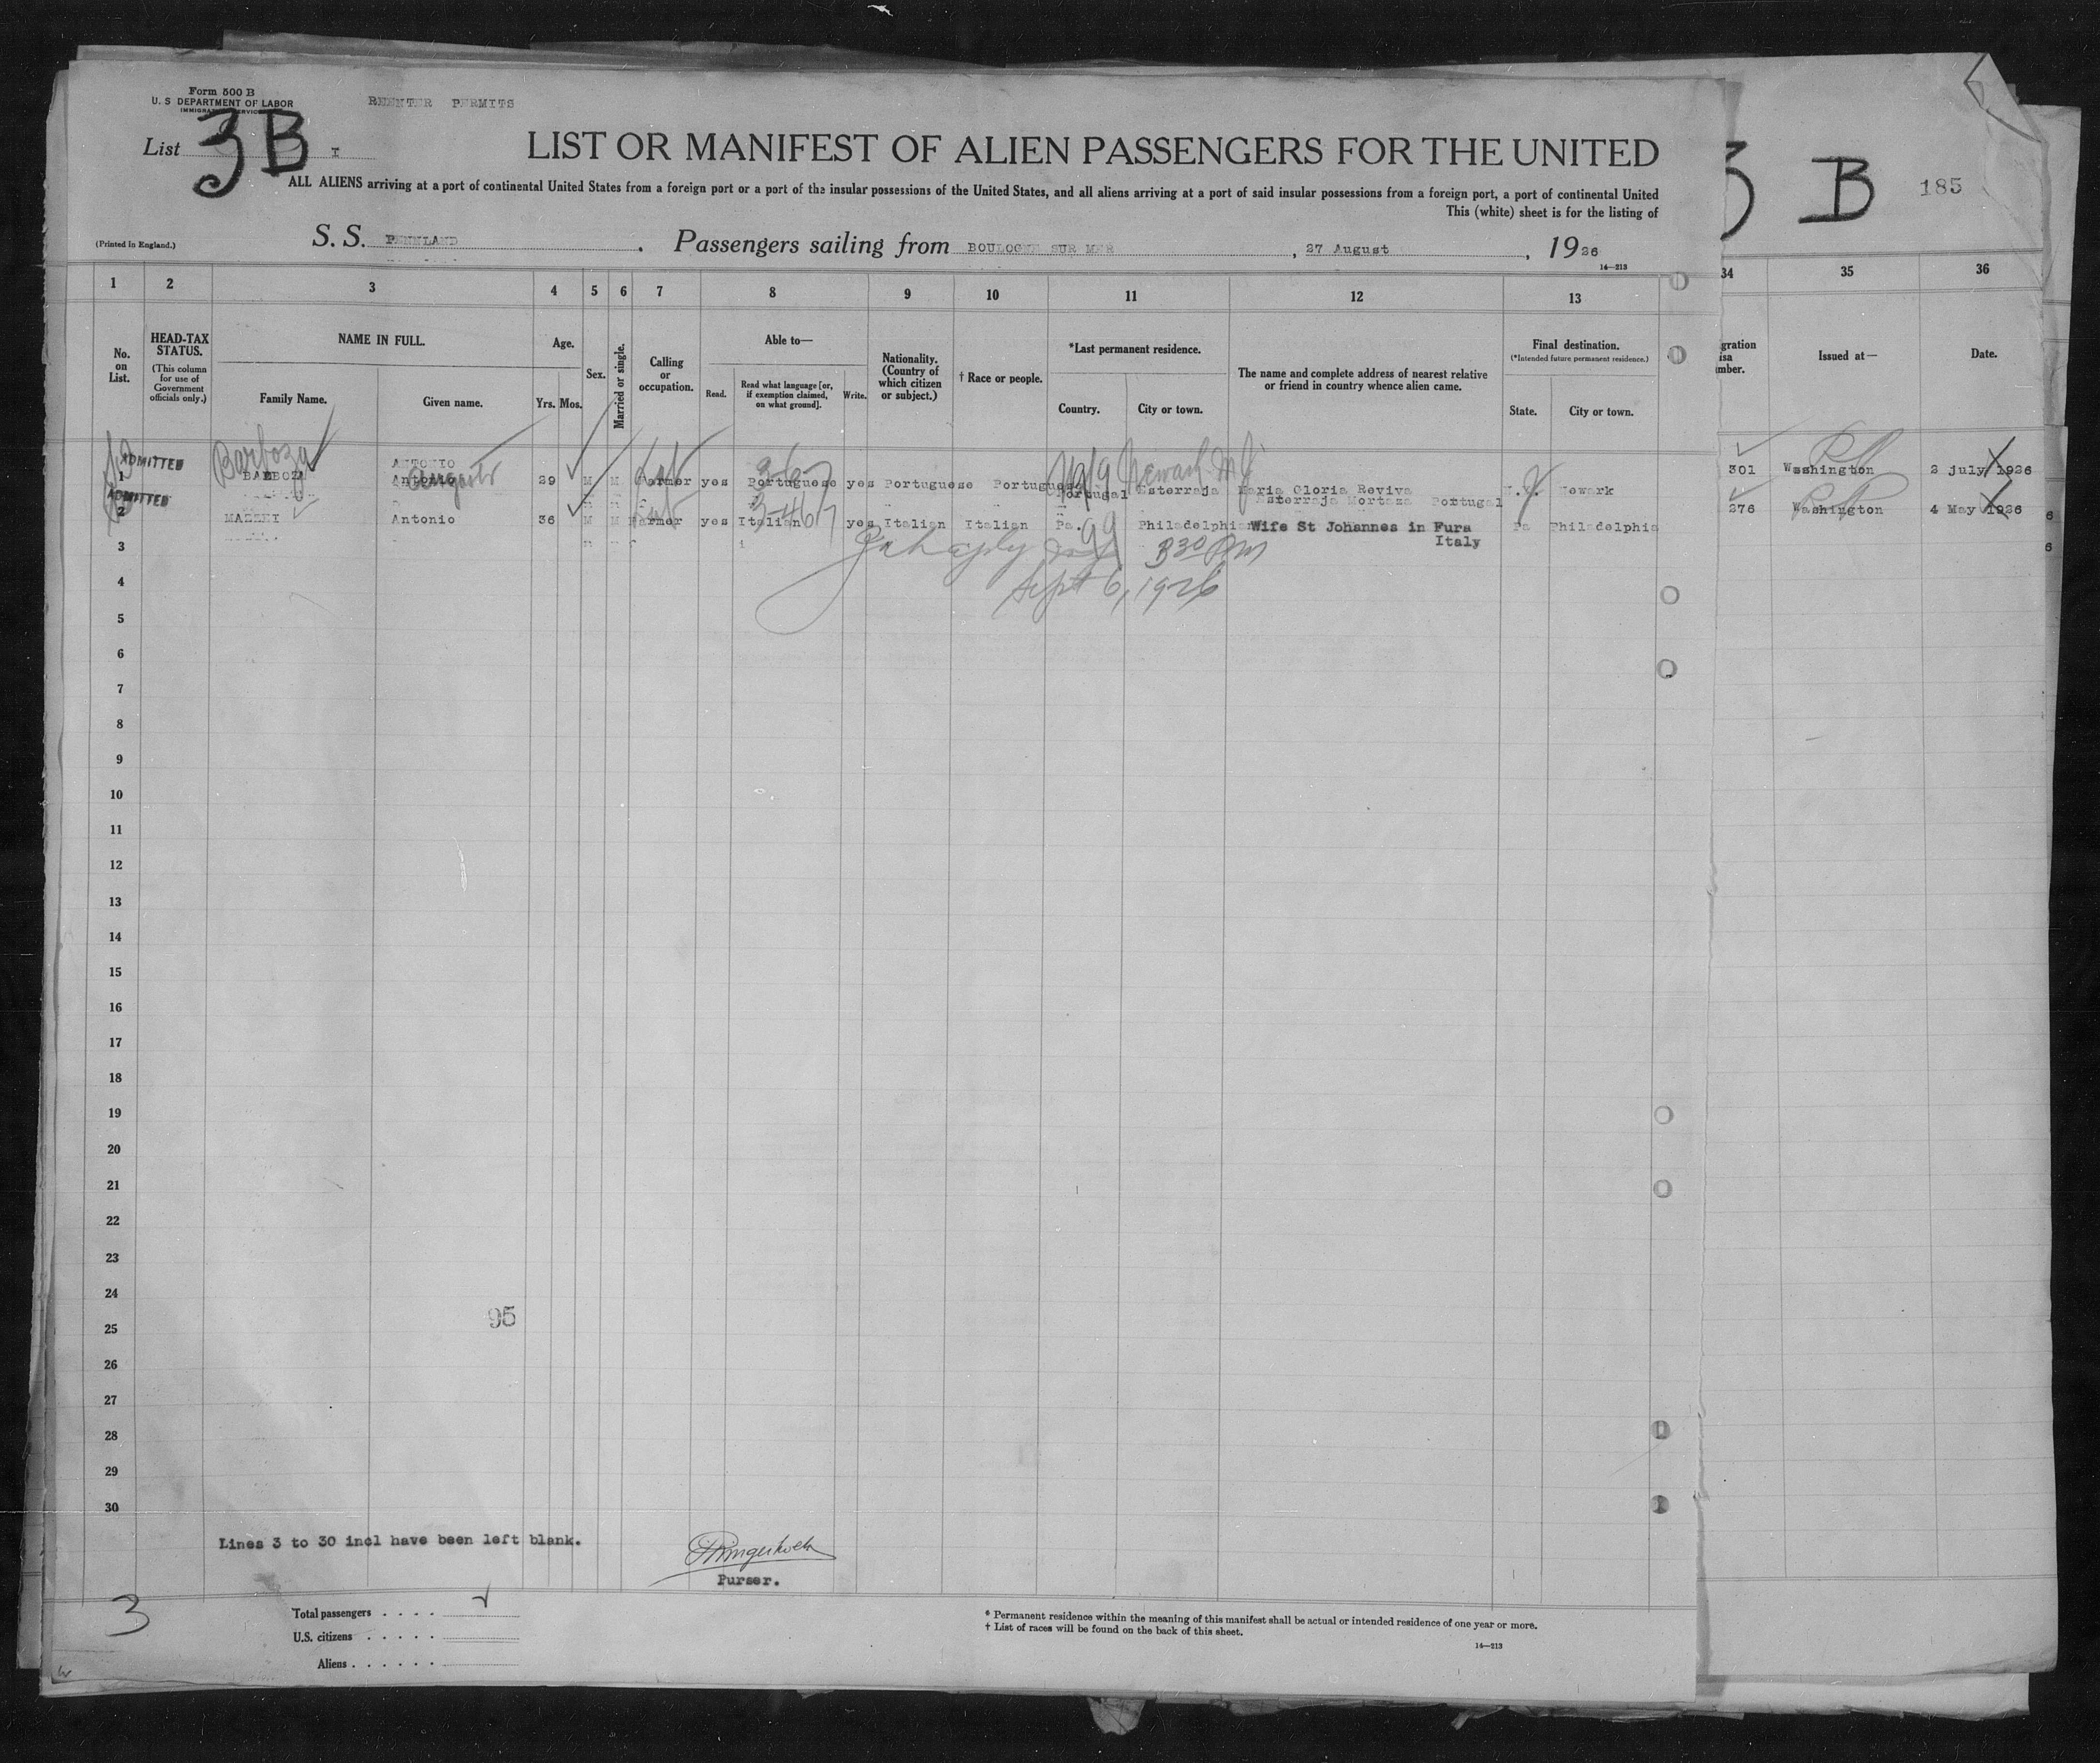 Form 500 B
U. S DEPARTMENT OF LABOR
REENTER PERMITS
List 3 B I
LIST OR MANIFEST OF ALIEN PASSENGERS FOR THE UNITED
ALL ALIENS arriving at a port of continental United States from a foreign port or a port of the insular possessions of the United States, and all aliens arriving at a port of said insular possessions from a foreign port, a port of continental United
This (white) sheet is for the listing of
(Printed in England.)
S. S. PENNLAND. Passengers sailing from BOULOGNE SUR MER, 27 August, 1926
14—213
B 185
1 2 3 4 5 6 7 8 9 10 11 12 13
34 35 36
No. on List.
HEAD-TAX STATUS.
(This column for use of Government officials only.)
NAME IN FULL.
Family Name. Given name.
Age.
Yrs. Mos.
Sex.
Married or single.
Calling or occupation.
Able to—
Read. Read what language [or, if exemption claimed, on what ground]. Write.
Nationality. (Country of which citizen or subject.)
† Race or people.
*Last permanent residence.
Country. City or town.
The name and complete address of nearest relative or friend in country whence alien came.
Final destination.
(*Intended future permanent residence.)
State. City or town.
Issued at—
Date.
ADMITTED Barboza ANTONIO Newark NJ
1 BARBOZA Augusto 29 M M Farmer yes Portuguese yes Portuguese Portuguese Portugal Esterraja Maria Gloria Reviva N.J. Newark 301 Washington 2 july 1926
Esterraja Mortaza Portugal
ADMITTED
2 MAZZEI Antonio 36 M M Farmer yes Italian yes Italian Italian Pa. Philadelphia Wife St Johannes in Fura Pa Philadelphia 276 Washington 4 May 1926
Italy
3 30 PM
Sept 6, 1926
3
4
5
6
7
8
9
10
11
12
13
14
15
16
17
18
19
20
21
22
23
24
95
25
26
27
28
29
30
Lines 3 to 30 incl have been left blank.
Purser.
3
Total passengers
U.S. citizens
Aliens
* Permanent residence within the meaning of this manifest shall be actual or intended residence of one year or more.
† List of races will be found on the back of this sheet.
14—213